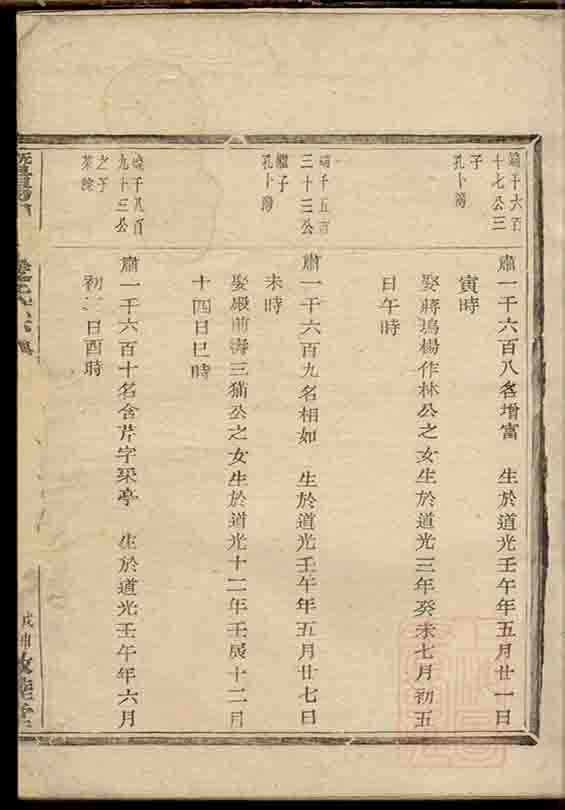 端千六百
十七公三
子
孔卜灣
肅一千六百八名增富　生於道光壬午年五月廿一日
寅時
娶蔣塢楊作林公之女生於道光三年癸未七月初五
日午時
端千五百
三十三公
繼子
孔卜灣
肅一千六百九名相如　生於道光壬午年五月廿七日
未時
娶殿前濤三猫公之女生於道光十二年壬辰十二月
十四日巳時
端千八百
九十三公
之子
肅一千六百十名含芹字采亭　生於道光壬午年六月
初二日酉時
戊申敦睦堂